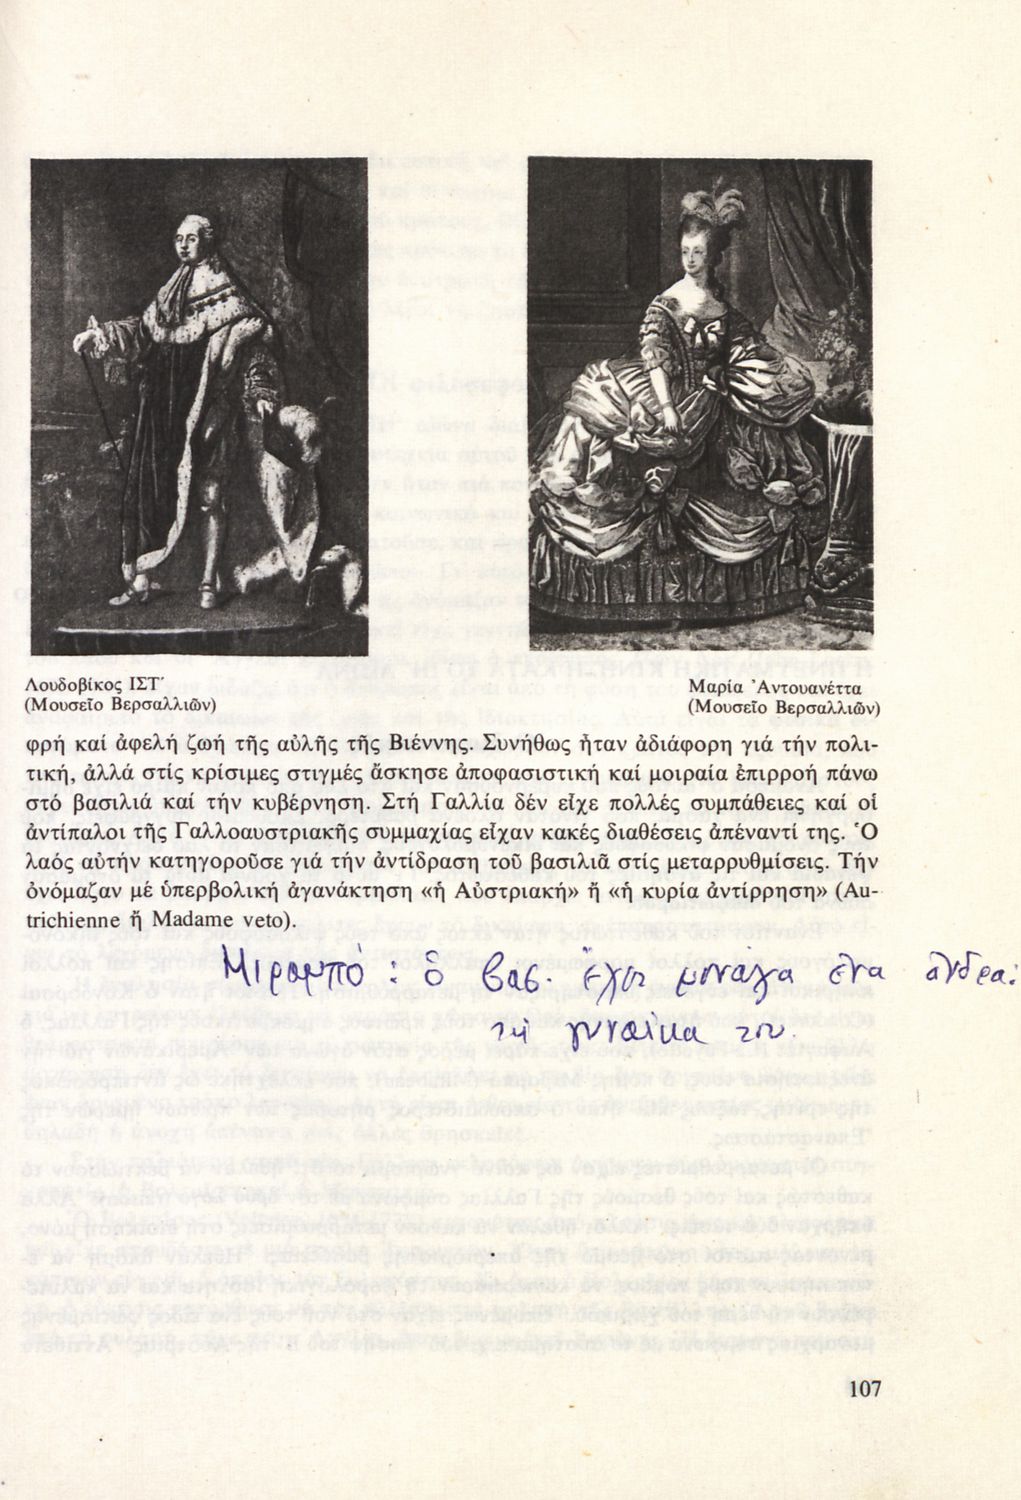 Λουδοβίκος ΙΣΤ΄
(Μουσεῖο Βερσαλλιῶν)
Μαρία Ἀντουανέττα
(Μουσεῖο Βερσαλλιῶν)
φρή καί ἀφελή ζωή τῆς αὐλῆς τῆς Βιέννης. Συνήθως ἦταν ἀδιάφορη γιά τήν πολι-
τική, ἀλλά στίς κρίσιμες στιγμές ἄσκησε ἀποφασιστική καί μοιραία ἐπιρροή πάνω
στό βασιλιά καί τήν κυβέρνηση. Στή Γαλλία δέν εἶχε πολλές συμπάθειες καί οἱ
ἀντίπαλοι τῆς Γαλλοαυστριακῆς συμμαχίας εἶχαν κακές διαθέσεις ἀπέναντί της. Ὁ
λαός αὐτήν κατηγοροῦσε γιά τήν ἀντίδραση τοῦ βασιλιᾶ στίς μεταρρυθμίσεις. Τήν
ὀνόμαζαν μέ ὑπερβολική ἀγανάκτηση «ἡ Αὐστριακή» ἤ «ἡ κυρία ἀντίρρηση» (Au-
trichienne ἤ Madame veto).
Μιραμπό: ὁ βας. ἔχει μονάχα ἕνα ἄνδρα:
τή γυναίκα του.
107